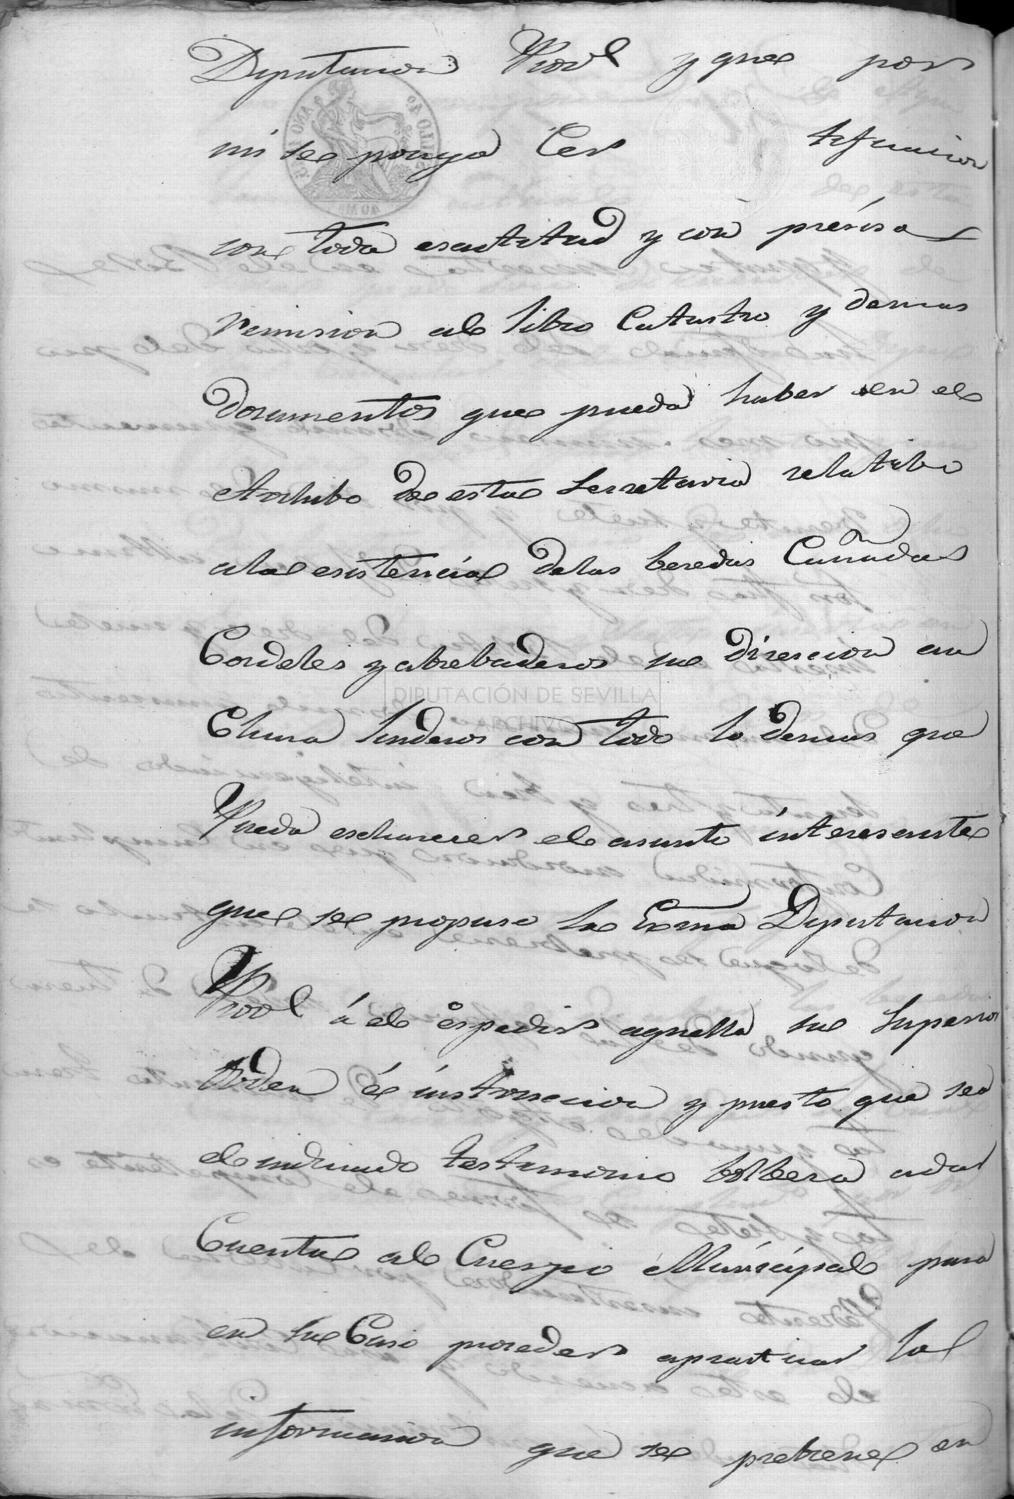 Diputacion Prov.l y que por
mi se ponga Cer tificacion
con toda esactitud y con présisa
remision al libro Catastro y demas
documentos que pueda haber en el
Archibo de esta Secretaria relatibo
ala esistencia delas beredas Cañadas
Cordeles y abrebaderos su direccion an
Chura linderos con todo lo demas que
Pueda esclarecer el asunto interesante
que se propuso la Exma Diputacion
Prov.l á el espedir aquella su Superior
Orden é instruccion y puesto que sea
el indicado testimonio bolbera adar
Cuenta al Cuerpo Municipal para
en su Caso proceder apracticar la
informacion que se prebiene en
DIPUTACIÓN DE SEVILLA
ARCHIVO